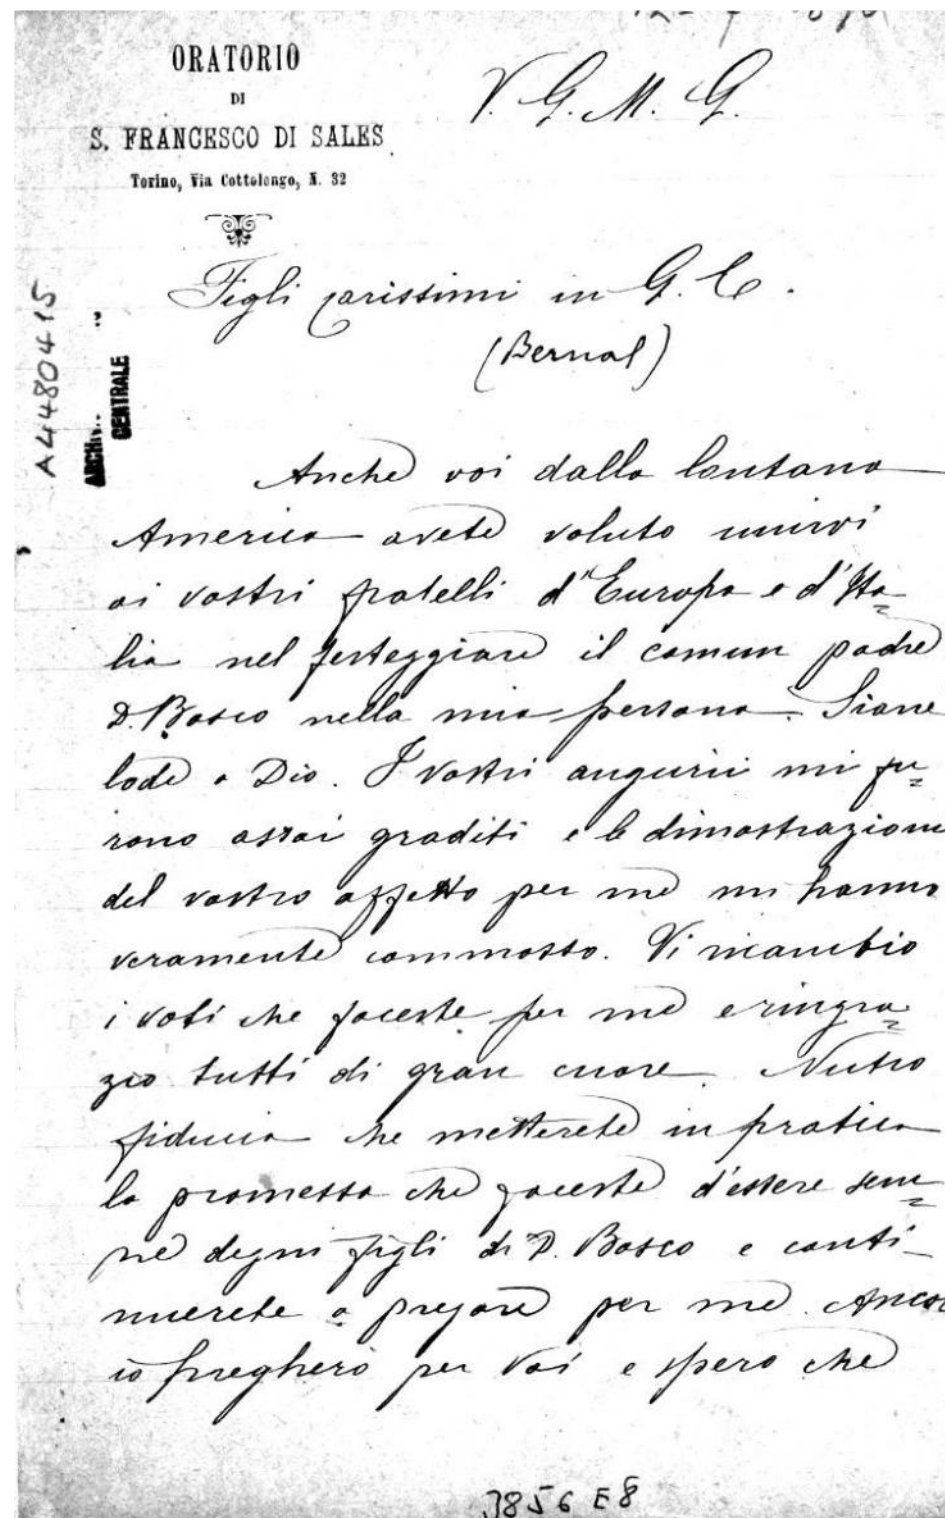 ORATORIO
DI
S. FRANCESCO DI SALES
Torino, Via Cottolengo, N. 32
V. G. M. G.
Figli carissimi in G. C.
(Bernal)
A4480415
ARCHIV..
CENTRALE
Anche voi dalla lontana
America avete voluto unirvi
ai vostri fratelli d'Europa e d'Ita=
lia nel festeggiare il comun padre
D. Bosco nella mia persona. Siane
lode a Dio. I vostri augurii mi fu=
rono assai graditi e le dimostrazioni
del vostro affetto per me mi hanno
veramente commosso. Vi ricambio
i voti che faceste per me e ringra=
zio tutti di gran cuore. Nutro
fiducia che metterete in pratica
la promessa che faceste d'essere sem=
pre degni figli di D. Bosco e conti-
nuerete a pregare per me. Ancor
io pregherò per voi e spero che
3856 E8